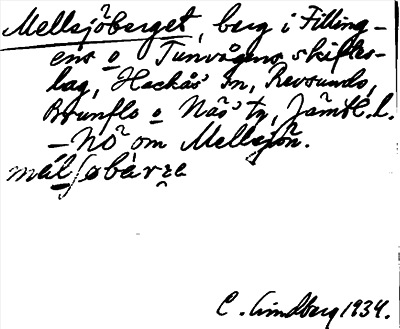 Mellsjöberget, berg i Filling-
ens o Tunvågens skiftes-
lag, Hackås' sn, Revsunds,
Brunflo o Näs' tg, Jämtl. l.
– NO om Mellsjön.
mælʃøbàrɛ
C. Lindberg 1934.